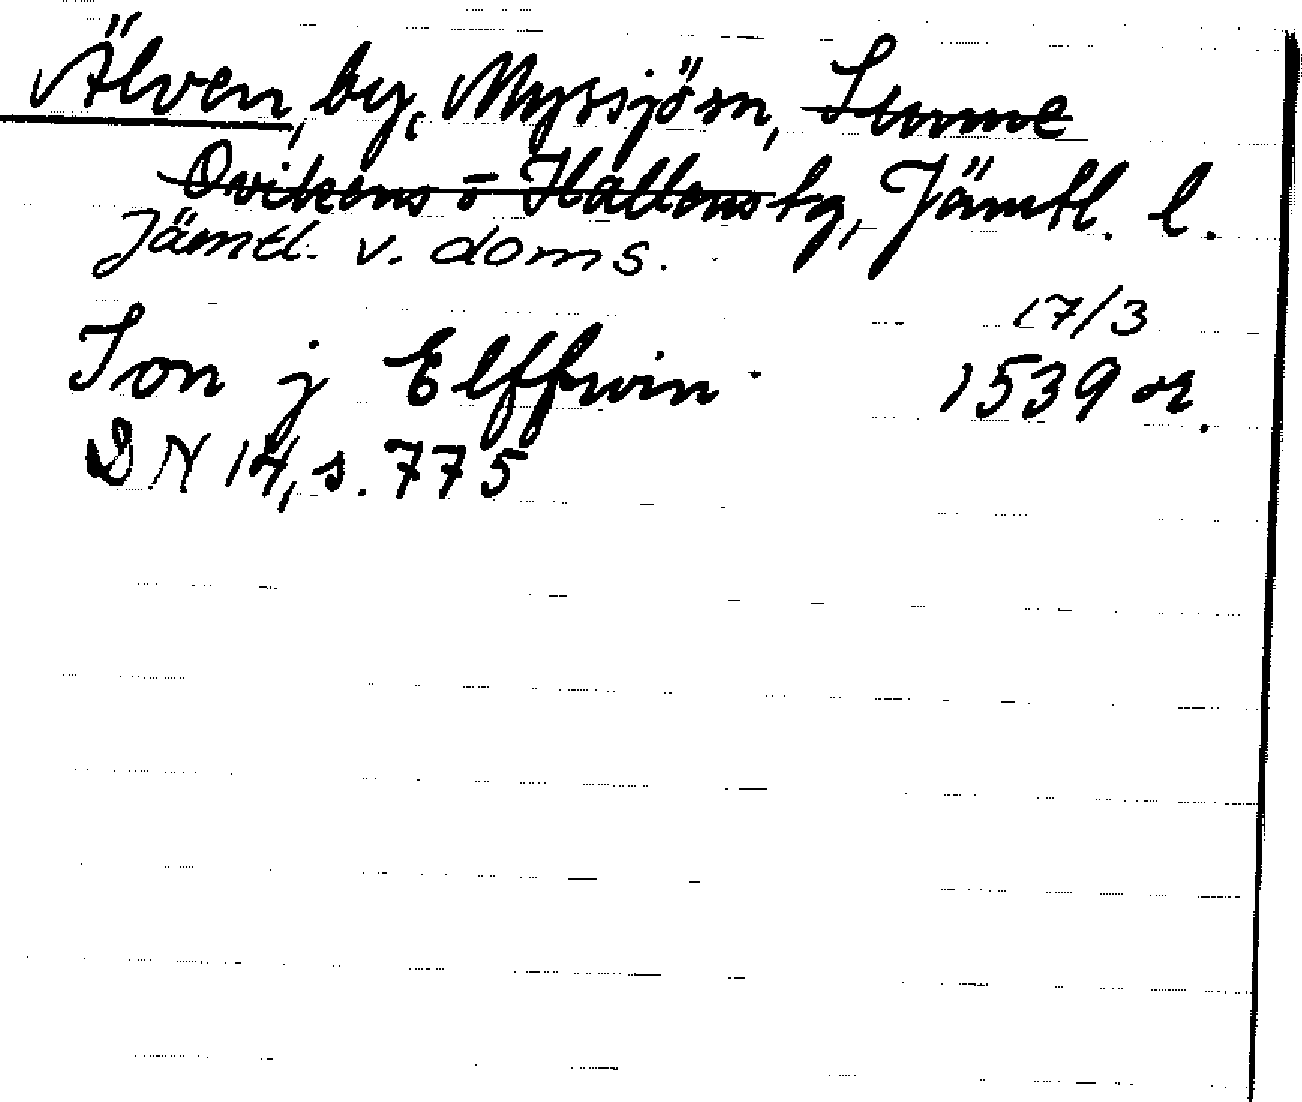 Älven, by, Myssjö sn, Sunne
Ovikens o Hallens tg, Jämtl. l.
Jämtl. v. doms.
17/3
Ion j Elffwin 1539 or.
DN 14, s. 775